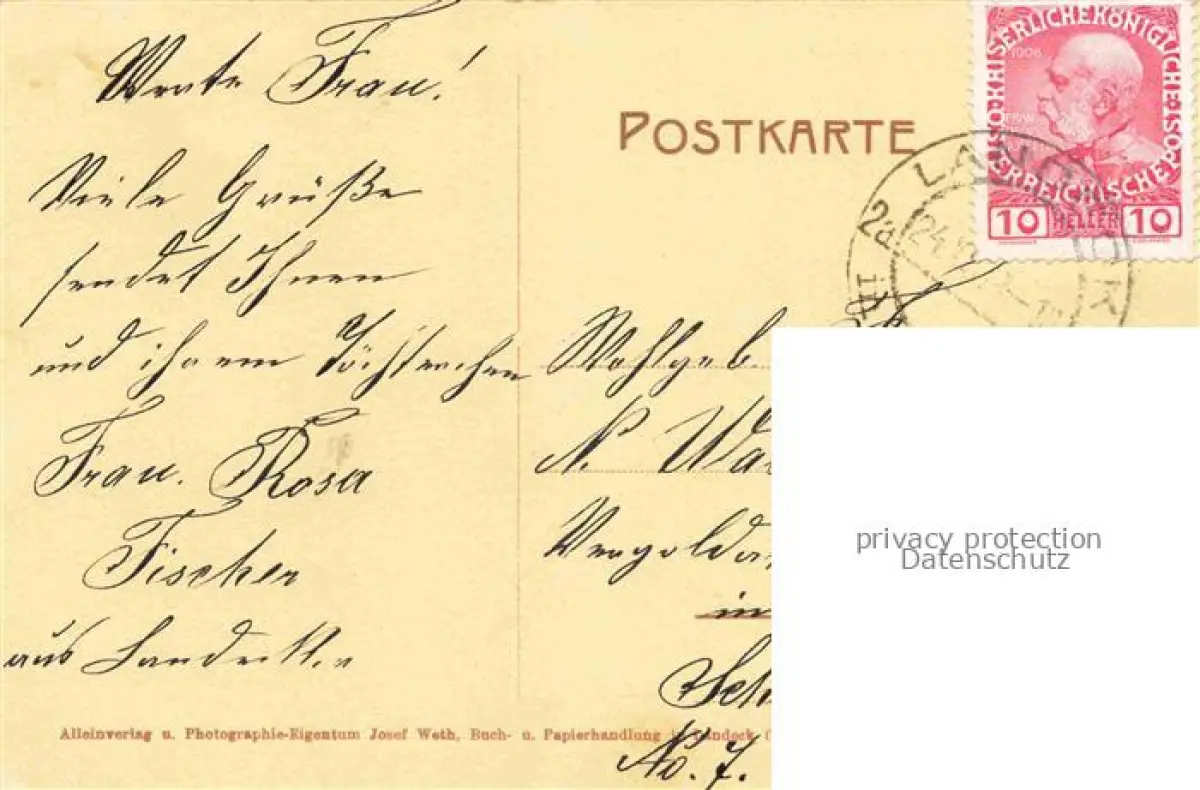 Werte Frau!
Viele Grüße
sendet Ihnen
und ihrem Töchterchen
Frau. Rosa
Fischer
aus Landeck.
POSTKARTE
KAISERLICHE KÖNIGLICHE
ÖSTERREICHISCHE POST
1908
10 HELLER 10
LANDECK
2a
24
Wohlgeb.
N.
in
No. 7.
privacy protection
Datenschutz
Alleinverlag u. Photographie-Eigentum Josef Weth, Buch- u. Papierhandlung in Landeck